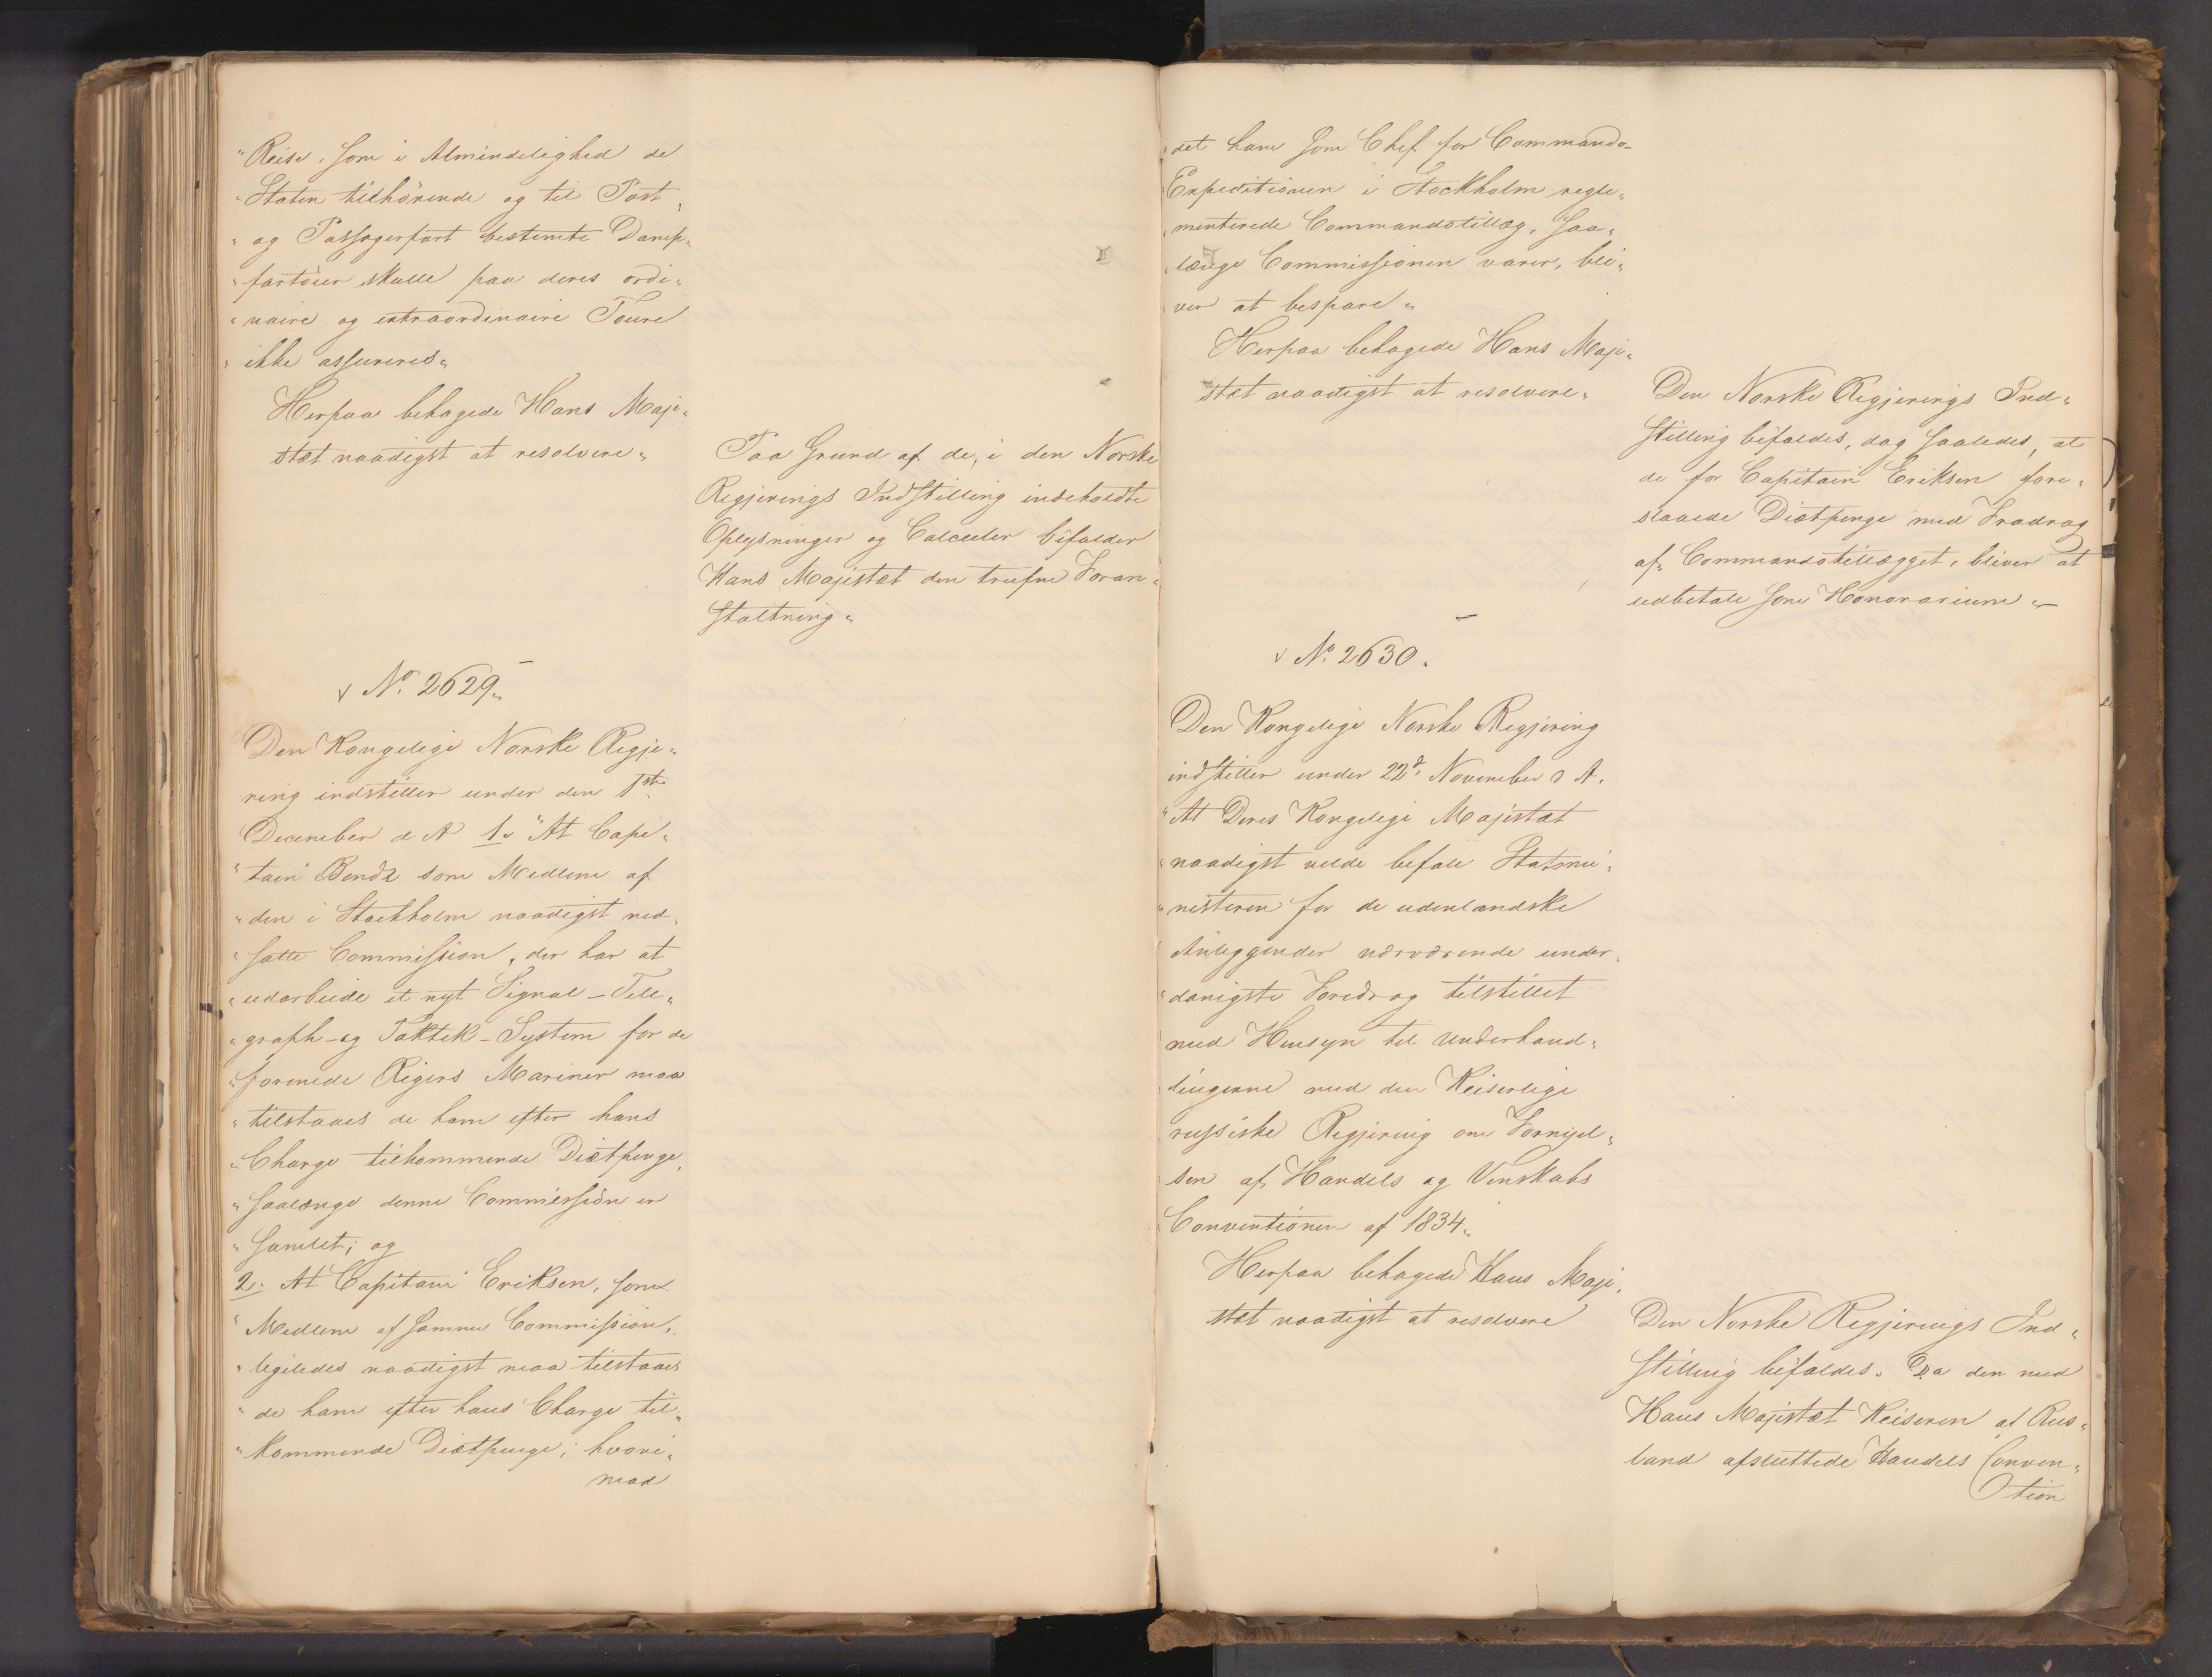 "Reise, som i Almindelighed de
"Staten tilhörende og til Post„
"og Passagerfart bestemte Damp„
"fartöier skulle paa deres ordi„
"naire og extraordinaire Toure
"ikke assureres„
Herpaa behagede Hans Maje„
stæt naadigst at resolvere„
Paa Grund af de, i den Norske
Regjerings Indstilling indeholdte
Oplysninger og Calculer bifalder
Hans Majestæt den trufne Foran„
staltning„
No. 2629„
Den Kongelige Norske Regje„
ring indstiller under den 1ste
December d. A. 1. "At Capi„
"tain Bendz som Medlem af
"den i Stockholm naadigst ned„
"satte Commission, der har at
"udarbeide et nyt Signal-Tele„
"graph-og Taktik-System for de
"forenede Rigers Mariner maa
"tilstaaes de ham efter hans
"Charge tilkommende Diætpenge,
"saalænge denne Commission er
"samlet; og
2. At Capitain Eriksen, som
"Medlem af samme Commission,
"ligeledes naadigst maa tilstaaes
"de ham efter hans Charge til„
"kommende Diætpenge; hvori„
mod
"det ham som Chef for Commando-
"Expeditionen i Stockholm regle„
"menterede Commandotillæg, saa„
"længe Commissionen varer, bli„
"ver at bespare„
Herpaa behagede Hans Maje„
stæt naadigst at resolvere„
Den Norske Regjerings Ind„
stilling bifaldes, dog saaledes, at
de for Capitain Eriksen fore„
slaaede Diætpenge med Fradrag
af Commandotillægget, bliver at
udbetale som Honorarium„
No. 2630.
Den Kongelige Norske Regjering
indstiller under 22d. November d. A.
"At Deres Kongelige Majestæt
"naadigst vilde befale Statsmi„
"nisteren for de udenlandske
"Anliggender nærværende under„
"danigste Foredrag tilstillet
"med Hensyn til Underhand„
"lingerne med den Keiserlige
"russiske Regjering om Fornyel„
"sen af Handels og Venskabs
"Conventionen af 1834„
Herpaa behagede Hans Maje„
stæt naadigst at resolvere
Den Norske Regjerings Ind„
stilling bifaldes. Da den med
Hans Majestæt Keiseren af Rus„
land afsluttede Handels Conven„
tion